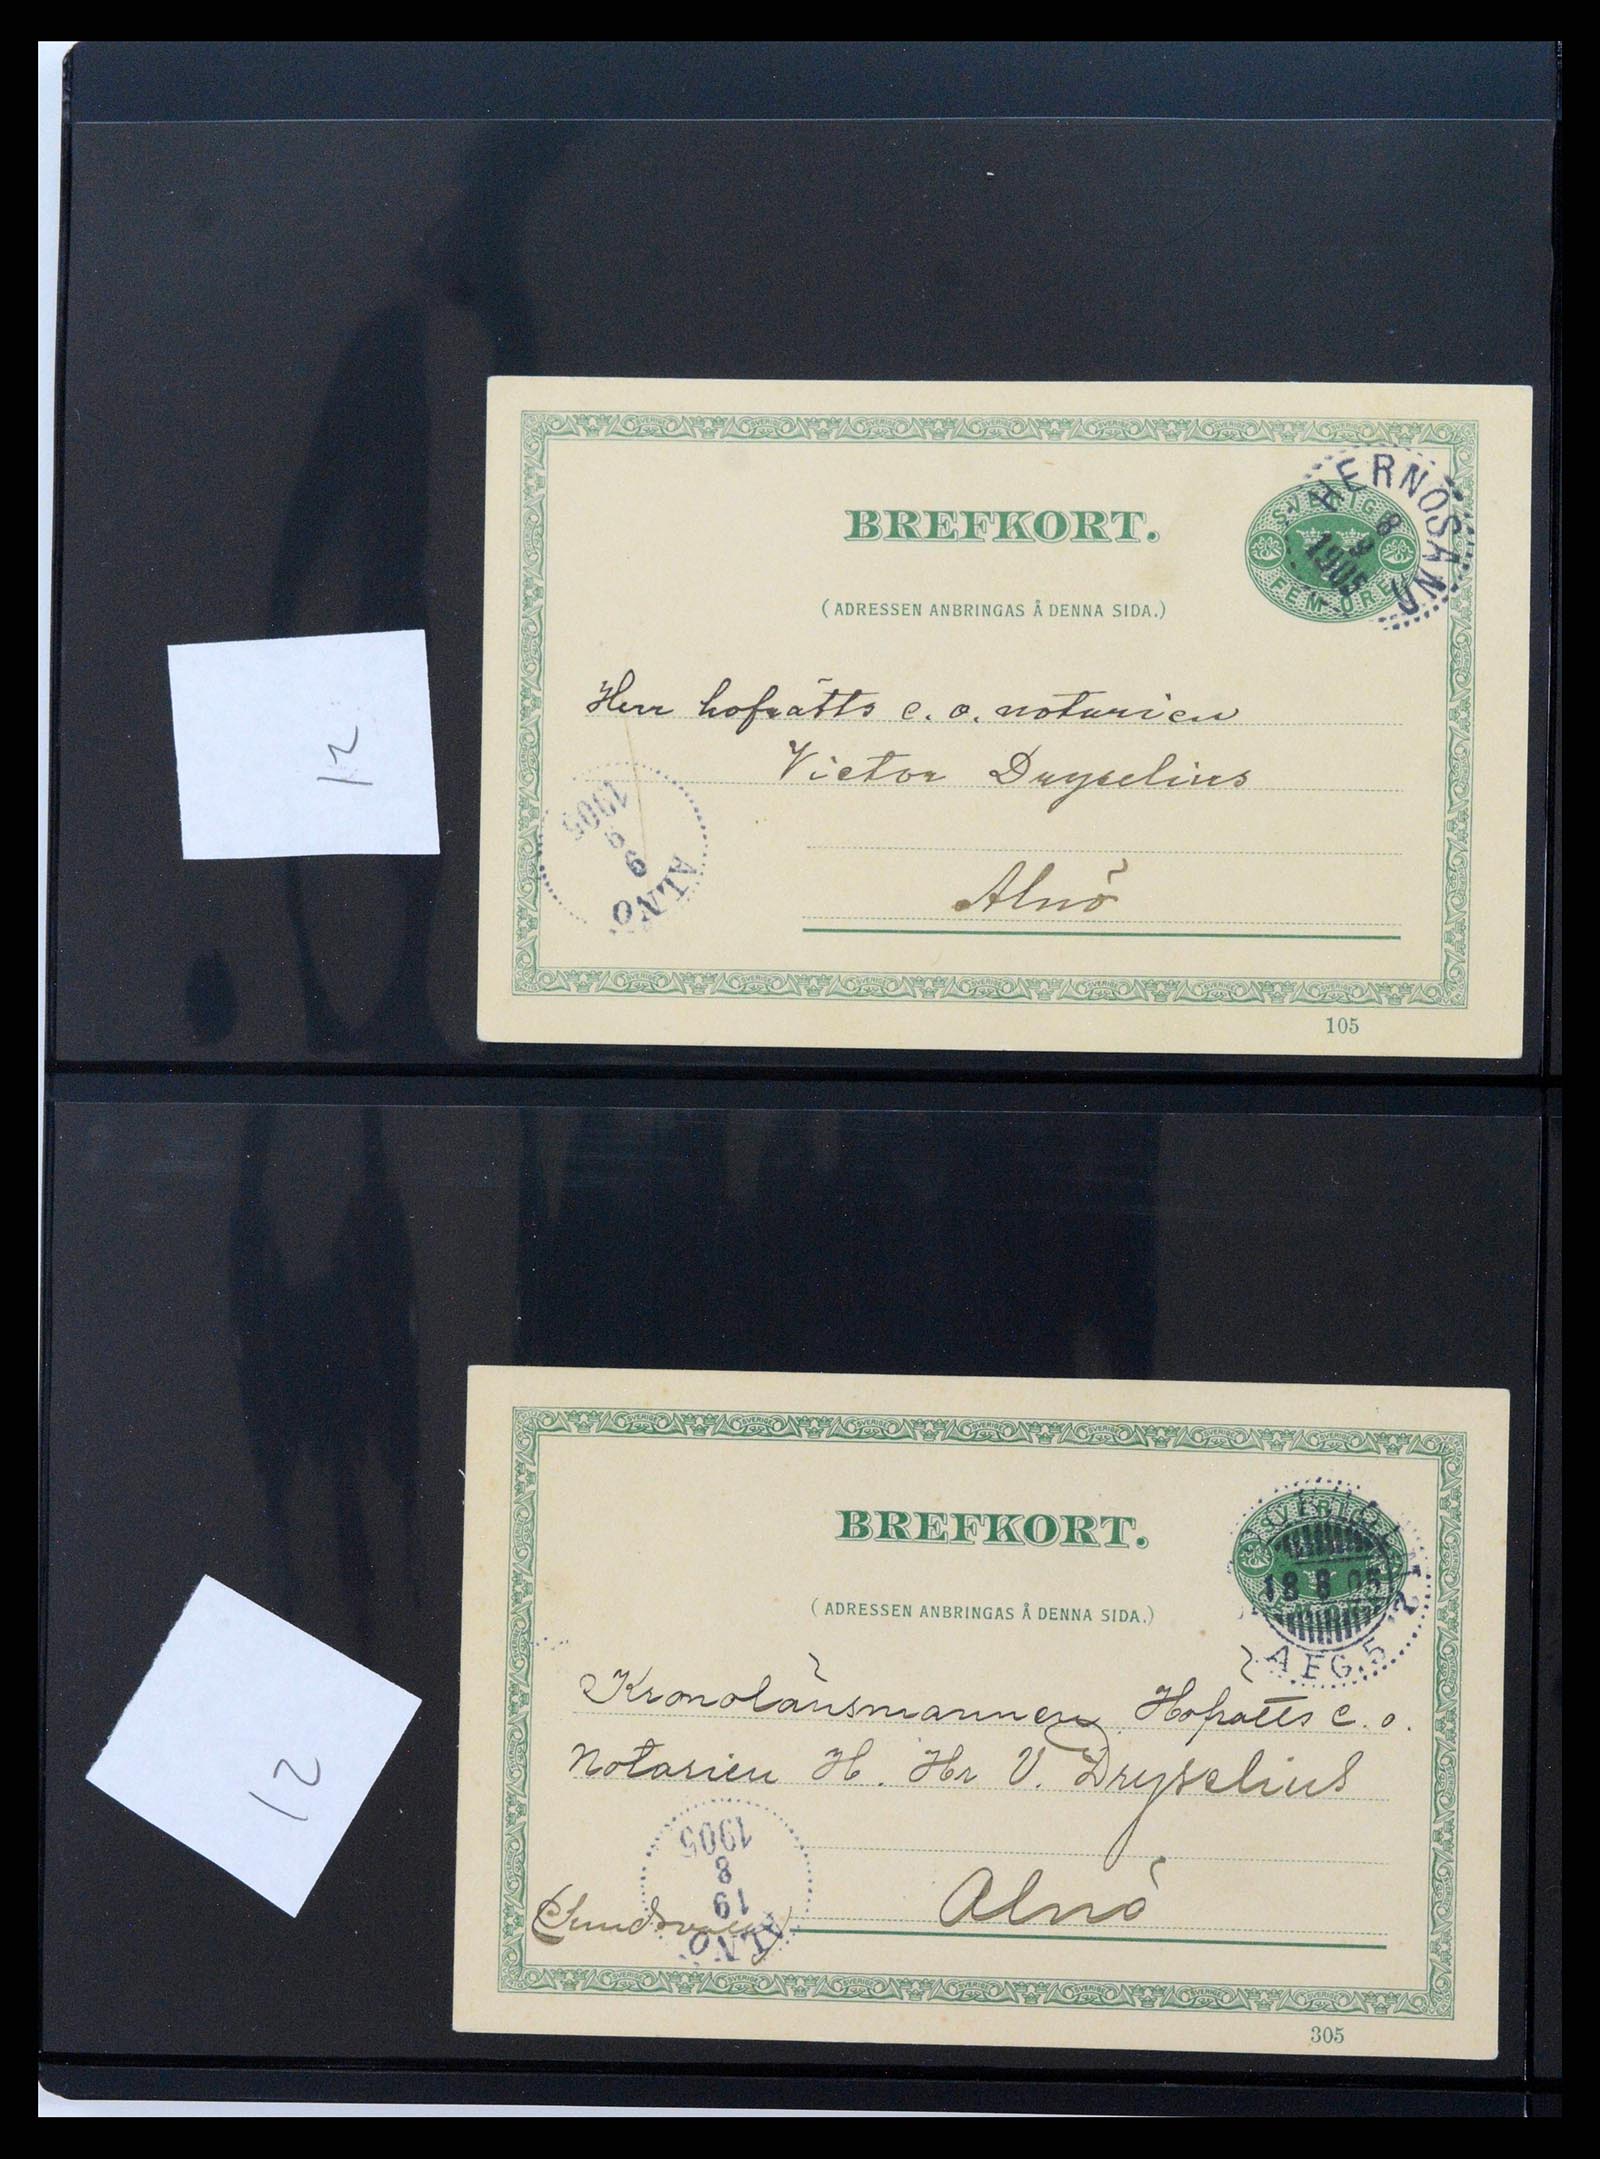 BREFKORT.
SVERIGE
FEM ÖRE
HERNÖSAND
8
9
1905
(ADRESSEN ANBRINGAS Å DENNA SIDA.)
12
Herr hofrätts e. o. notarien
Victor Dryselius
1905
9
9
ALNÖ
Alnö
105
BREFKORT.
18 8 05
AFG. 5
(ADRESSEN ANBRINGAS Å DENNA SIDA.)
Kronolänsmannen Hofrätts e. o.
Notarien H. Hr V. Dryselius
12
1905
8
19
ALNÖ
Alnö
(Sundsvall)
305